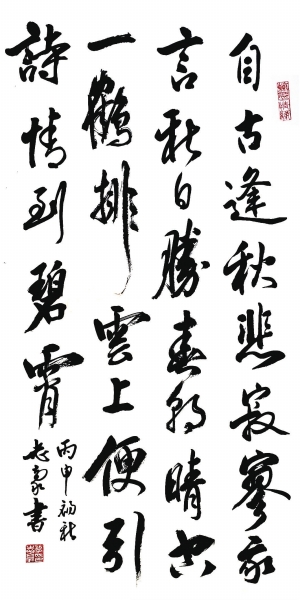 自古逢秋悲寂寥我
言秋日勝春朝晴空
一鶴排雲上便引
詩情到碧霄
丙申初秋
書